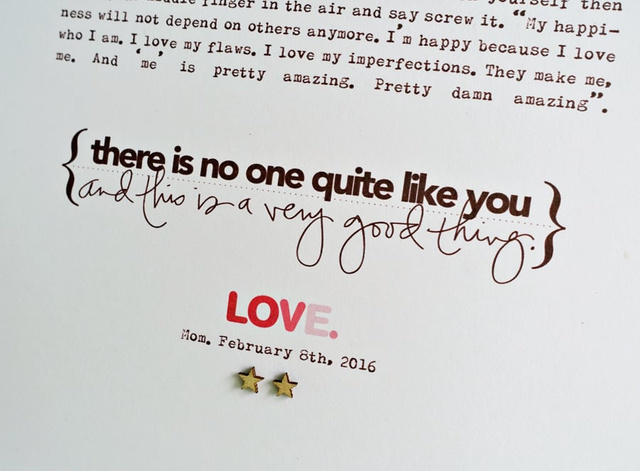 finger in the air and say screw it. “My happi-
ness will not depend on others anymore. I'm happy because I love
who I am. I love my flaws. I love my imperfections. They make me,
me. And 'me' is pretty amazing. Pretty damn amazing”.
{there is no one quite like you
and this is a very good thing.}
LOVE.
Mom. February 8th, 2016